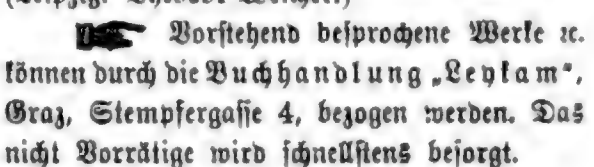 ☛ Vorstehend besprochene Werke ꝛc.
können durch die Buchhandlung „Leykam“,
Graz, Stempfergasse 4, bezogen werden. Das
nicht Vorrätige wird schnellstens besorgt.